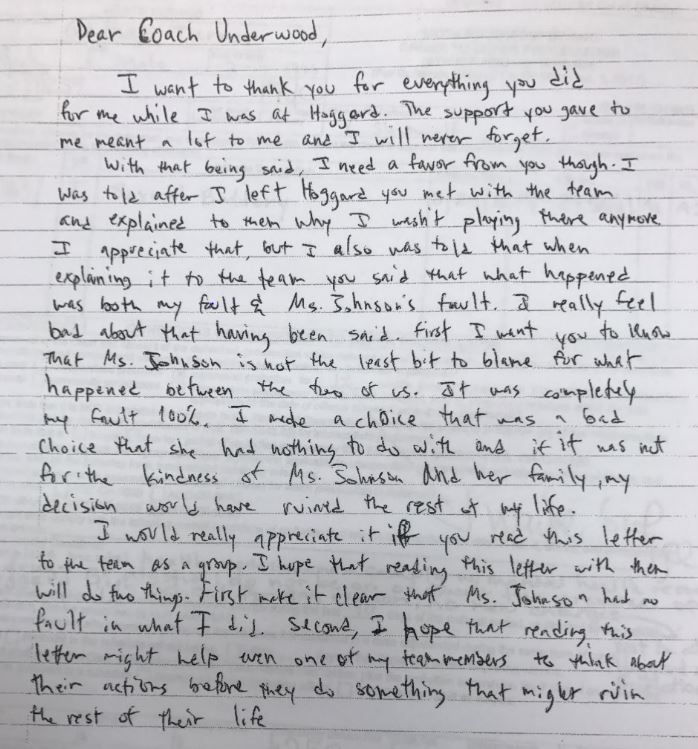 Dear Coach Underwood,
I want to thank you for everything you did
for me while I was at Hoggard. The support you gave to
me meant a lot to me and I will never forget.
With that being said, I need a favor from you though. I
was told after I left Hoggard you met with the team
and explained to them why I wasn't playing there anymore
I appreciate that, but I also was told that when
explaining it to the team you said that what happened
was both my fault & Ms. Johnson's fault. I really feel
bad about that having been said. First I want you to know
that Ms. Johnson is not the least bit to blame for what
happened between the two of us. It was completely
my fault 100%. I made a choice that was a bad
choice that she had nothing to do with and if it was not
for the kindness of Ms. Johnson And her family, my
decision would have ruined the rest of my life.
I would really appreciate it if you read this letter
to the team as a group. I hope that reading this letter with them
will do two things. First make it clear that Ms. Johnson had no
fault in what I did. Second, I hope that reading this
letter might help even one of my team members to think about
their actions before they do something that might ruin
the rest of their life